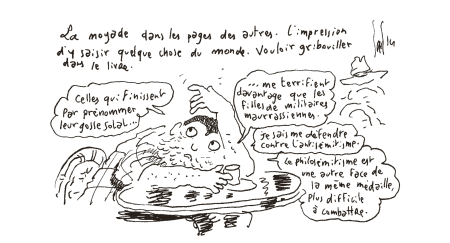 La noyade dans les pages des autres. L'impression
d'y saisir quelque chose du monde. Vouloir gribouiller
dans le livre.
Celles qui finissent
par prénommer
leur gosse solal...
... me terrifient
davantage que les
filles de militaires
maurrassiennes.
Je sais me défendre
contre l'antisémitisme.
Le philosémitisme est
une autre face de
la même médaille,
plus difficile
à combattre.